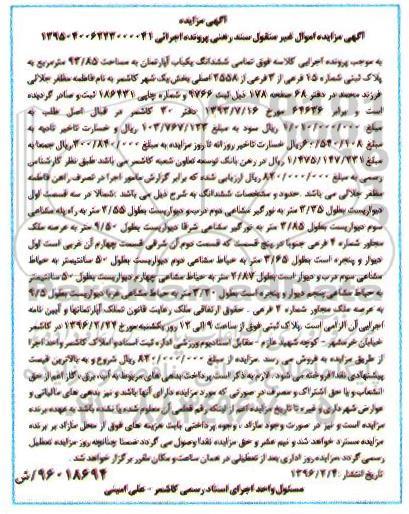 آگهی مزایده
آگهی مزایده اموال غیر منقول سند رهنی پرونده اجرائی ۱۳۹۵۰۴۰۰۶۲۲۳۰۰۰۰۴۱
به موجب پرونده اجرایی کلاسه فوق تمامی ششدانگ یکباب آپارتمان به مساحت ۹۳/۸۵ مترمربع به
پلاک ثبتی شماره ۱۵ فرعی از ۳ فرعی از ۳۵۵۸ اصلی بخش یک شهر کاشمر به نام فاطمه مظفر جلالی
فرزند محمد در دفتر ۶۸ صفحه ۱۷۸ ذیل ثبت ۹۷۶۶ و شماره چاپی ۱۸۶۴۳۱ ثبت و صادر گردیده
است و برابر ۶۴۶۳۶ مورخ ۱۳۹۳/۷/۱۶ دفتر ۳۰ کاشمر در قبال اصل طلب به
مبلغ ۱/۱۱۰/۰۰۰/۰۰۰ ریال سود به مبلغ ۱۰۳/۷۶۷/۱۲۳ و خسارت تاخیر تادیه به
مبلغ ۶۰/۵۴۰/۱۰۸ ریال خسارت تاخیر روزانه تا روز مزایده به مبلغ ۳۰۰/۸۴۰/۰۰۰ ریال جمعا به
مبلغ ۱/۴۷۵/۱۴۷/۲۳۱ ریال در رهن بانک توسعه تعاون شعبه کاشمر می باشد طبق نظر کارشناس
رسمی به مبلغ ۸۲۰/۰۰۰/۰۰۰ ریال ارزیابی شده که برابر گزارش مامور اجرا در تصرف راهن فاطمه
مظفر جلالی می باشد. حدود و مشخصات ششدانگ به شرح ذیل می باشد. شمالا در سه قسمت اول
دیواریست بطول ۳/۳۵ متر به نورگیر مشاعی دوم درب و دیواریست بطول ۲/۵۵ متر به راه پله مشاعی
سوم دیواریست بطول ۳/۸۵ متر به نورگیر مشاعی شرقا دیواریست بطول ۹/۵۰ متر به عرصه ملک
مجاور شماره ۴ فرعی جنوبا در پنج قسمت که قسمت دوم آن شرقی قسمت چهارم آن غربی است اول
دیوار و پنجره است بطول ۳/۶۵ متر به حیاط مشاعی دوم دیواریست بطول ۵۰ سانتیمتر به حیاط
مشاعی سوم درب و دیوار است بطول ۲/۸۷ متر به حیاط مشاعی چهارم دیواریست بطول ۵۰ سانتیمتر
به حیاط مشاعی پنجم دیوار و پنجره است بطول ۳/۲۰ متر به حیاط مشاعی غربا دیواریست بطول ۹/۵
به عرصه ملک مجاور شماره ۲ فرعی. حقوق ارتفاقی ملک رعایت قانون تملک آپارتمانها و آیین نامه
اجرایی آن الزامی است. پلاک ثبتی فوق از ساعت ۹ الی ۱۲ روز یکشنبه مورخ ۱۳۹۶/۲/۲۴ در کاشمر
خیابان خرمشهر - کوچه شهید عازم - مقابل استادیوم ورزشی اداره ثبت اسناد و املاک کاشمر واحد اجرا
از طریق مزایده به فروش می رسد. مزایده از مبلغ ۸۲۰/۰۰۰/۰۰۰ ریال شروع و به بالاترین قیمت
پیشنهادی نقدا فروخته می شود. لازم به ذکر است پرداخت بدهی های مربوط به آب، برق، گاز اعم از حق
انشعاب و یا حق اشتراک و مصرف در صورتی که مورد مزایده دارای آنها باشد و نیز بدهی های مالیاتی و
عوارض شهرداری و غیره تا تاریخ مزایده اعم از اینکه رقم قطعی آن معلوم شده یا نشده باشد به عهده برنده
مزایده است و نیز در صورت وجود مازاد، وجوه پرداختی بابت هزینه های فوق از محل مازاد بر برنده
مزایده مسترد خواهد شد و نیم عشر و حق مزایده نقدا وصول می گردد ضمنا چنانچه روز مزایده تعطیل
رسمی گردد مزایده روز اداری بعد از تعطیلی در همان ساعت و مکان مقرر برگزار خواهد شد.
تاریخ انتشار: ۱۳۹۶/۲/۴
۹۶۰۱۸۶۹۴/ش
مسئول واحد اجرای اسناد رسمی کاشمر - علی امینی